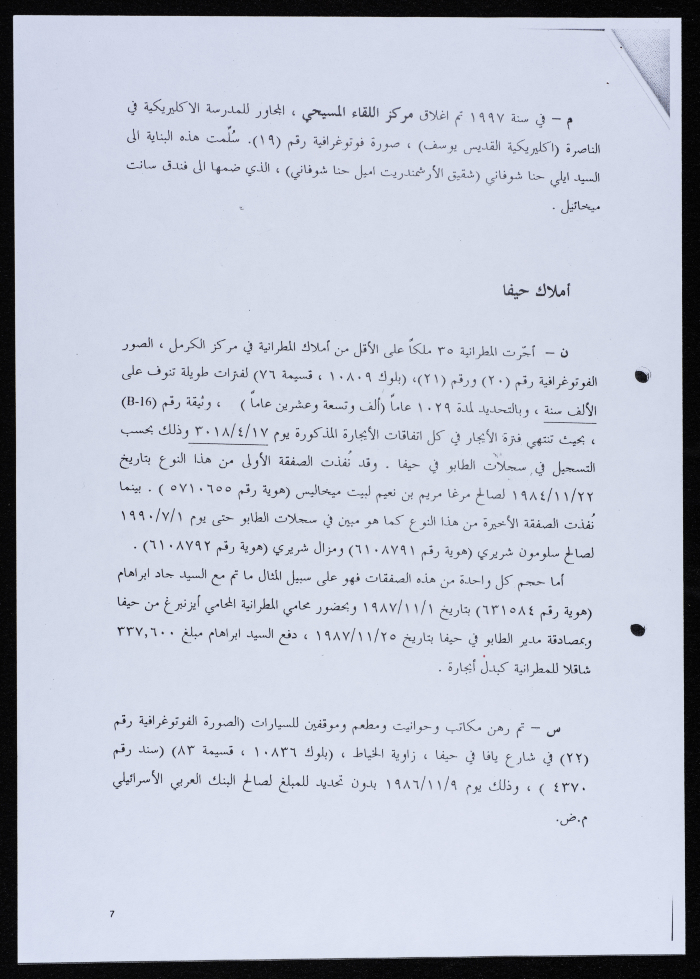 م – في سنة ١٩٩٧ تم اغلاق مركز اللقاء المسيحي ، المجاور للمدرسة الاكليريكية في
الناصرة (اكليريكية القديس يوسف) ، صورة فوتوغرافية رقم (١٩). سُلّمت هذه البناية الى
السيد ايلي حنا شوفاني (شقيق الأرشمندريت اميل حنا شوفاني) ، الذي ضمها الى فندق سانت
ميخائيل .
أملاك حيفا
ن – أجّرت المطرانية ٣٥ ملكاً على الأقل من أملاك المطرانية في مركز الكرمل ، الصور
الفوتوغرافية رقم (٢٠) ورقم (٢١)، (بلوك ١٠٨٠٩ ، قسيمة ٧٦) لفترات طويلة تنوف على
الألف سنة ، وبالتحديد لمدة ١٠٢٩ عاماً (ألف وتسعة وعشرين عاماً ) ، وثيقة رقم (B-16)
، بحيث تنتهي فترة الأيجار في كل اتفاقات الأيجارة المذكورة يوم ٣٠١٨/٤/١٧ وذلك بحسب
التسجيل في سجلات الطابو في حيفا . وقد نُفذت الصفقة الأولى من هذا النوع بتاريخ
١٩٨٤/١١/٢٢ لصالح مرغا مريم بن نعيم لبيت ميخاليس (هوية رقم ٥٧١٠٦٥٥ ) . بينما
نُفذت الصفقة الأخيرة من هذا النوع كما هو مبين في سجلات الطابو حتى يوم ١٩٩٠/٧/١
لصالح سلومون شريري (هوية رقم ٦١٠٨٧٩١) ومزال شريري (هوية رقم ٦١٠٨٧٩٢) .
أما حجم كل واحدة من هذه الصفقات فهو على سبيل المثال ما تم مع السيد جاد ابراهام
(هوية رقم ٦٣١٥٨٤) بتاريخ ١٩٨٧/١١/١ وبحضور محامي المطرانية المحامي أيزنبرغ من حيفا
وبمصادقة مدير الطابو في حيفا بتاريخ ١٩٨٧/١١/٢٥ ، دفع السيد ابراهام مبلغ ٣٣٧,٦٠٠
شاقلا للمطرانية كبدل أيجارة .
س – تم رهن مكاتب وحوانيت ومطعم وموقفين للسيارات (الصورة الفوتوغرافية رقم
(٢٢) في شارع يافا في حيفا ، زاوية الخياط ، (بلوك ١٠٨٣٦ ، قسيمة ٨٣) (سند رقم
٤٣٧٠ ) ، وذلك يوم ١٩٨٦/١١/٩ بدون تحديد للمبلغ لصالح البنك العربي الأسرائيلي
م.ض.
7